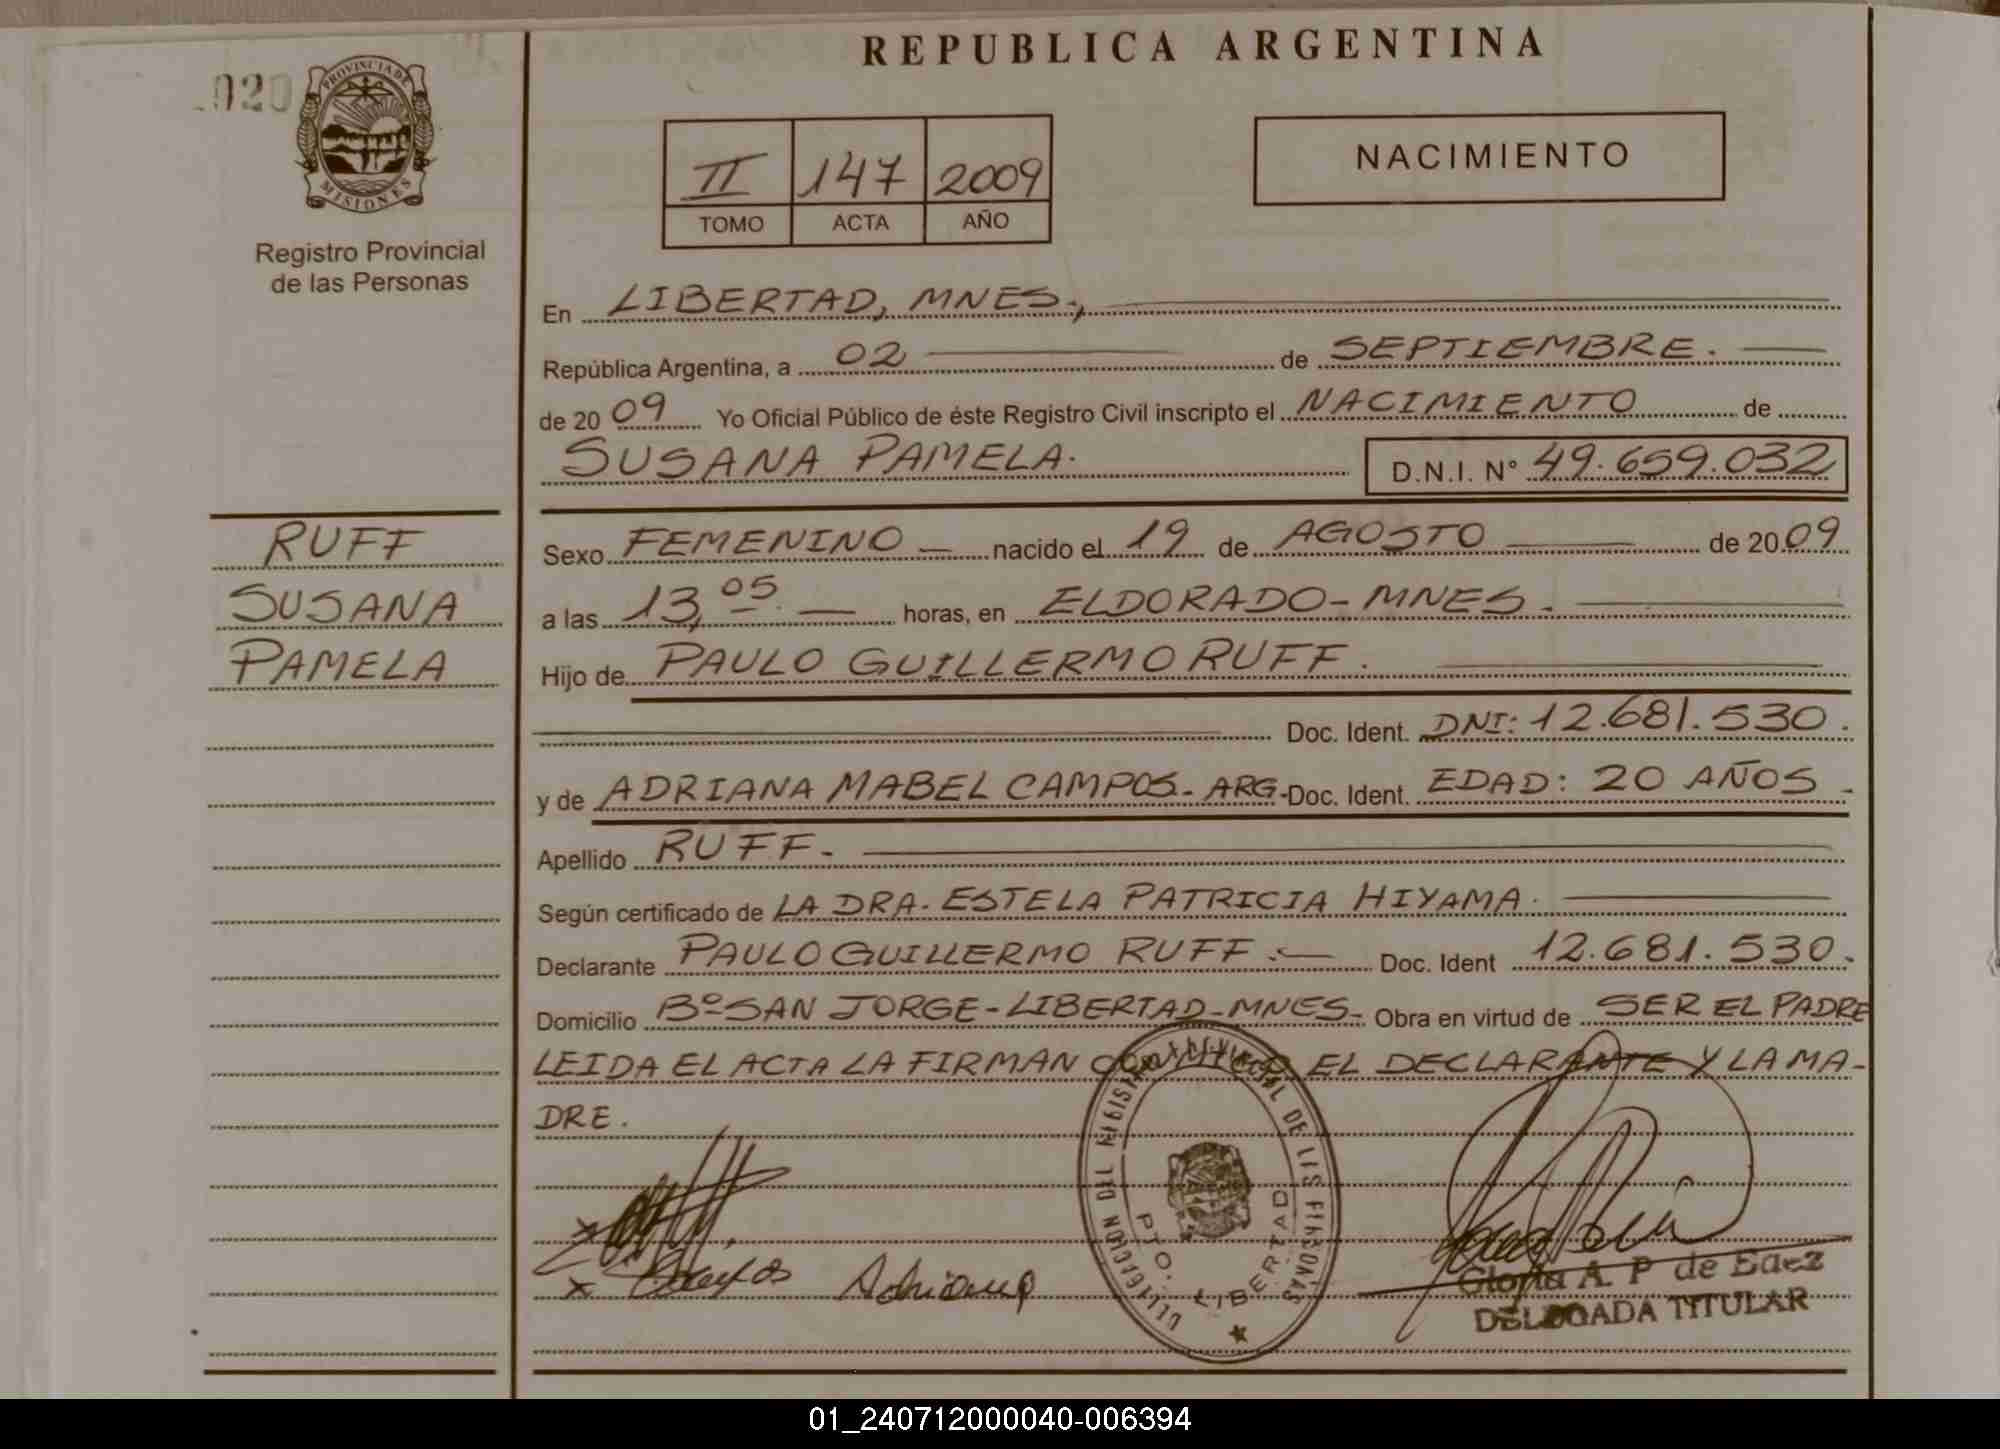 REPUBLICA ARGENTINA
020
PROVINCIA DE
MISIONES
Registro Provincial
de las Personas
II 147 2009
TOMO ACTA AÑO
NACIMIENTO
En LIBERTAD, MNES.,
República Argentina, a 02 de SEPTIEMBRE.
de 2009 Yo Oficial Público de éste Registro Civil inscripto el NACIMIENTO de
SUSANA PAMELA. D.N.I. N° 49.659.032
RUFF
SUSANA
PAMELA
Sexo FEMENINO nacido el 19 de AGOSTO de 2009
a las 13,05 horas, en ELDORADO-MNES.
Hijo de PAULO GUILLERMO RUFF.
Doc. Ident. DNI: 12.681.530.
y de ADRIANA MABEL CAMPOS. ARG- Doc. Ident. EDAD: 20 AÑOS.
Apellido RUFF.
Según certificado de LA DRA. ESTELA PATRICIA HIYAMA.
Declarante PAULO GUILLERMO RUFF Doc. Ident 12.681.530.
Domicilio Bº SAN JORGE-LIBERTAD-MNES- Obra en virtud de SER EL PADRE
LEIDA EL ACTA LA FIRMAN CONMIGO EL DECLARANTE Y LA MA-
DRE.
PTO. LIBERTAD
x
x Campos Adriana
Gloria A. P. de Saez
DELEGADA TITULAR
01_240712000040-006394